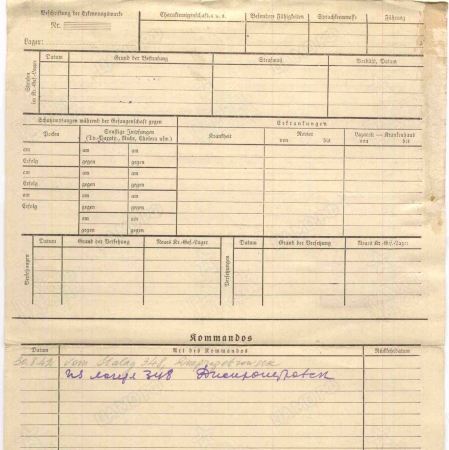 Beschriftung der Erkennungsmarke
Nr.
Lager:
Charaktereigenschaften u. s.
Besondere Fähigkeiten
Sprachkenntnisse
Führung
Strafen im Kr.-Gef.-Lager
Datum
Grund der Bestrafung
Strafmaß
Verbüßt, Datum
Schutzimpfungen während der Gefangenschaft gegen
Erkrankungen
Pocken
Sonstige Impfungen
(Ty.-Paraty., Ruhr, Cholera usw.)
Krankheit
Revier
von bis
Lazarett — Krankenhaus
von bis
am am am
Erfolg gegen gegen
am am am
Erfolg gegen gegen
am am am
Erfolg gegen gegen
am am
gegen gegen
Versetzungen
Datum
Grund der Versetzung
Neues Kr.-Gef.-Lager
Versetzungen
Datum
Grund der Versetzung
Neues Kr.-Gef.-Lager
Kommandos
Datum
Art des Kommandos
Rückkehrdatum
vom Stalag 348,
из лагеря 348 Днепропетровск